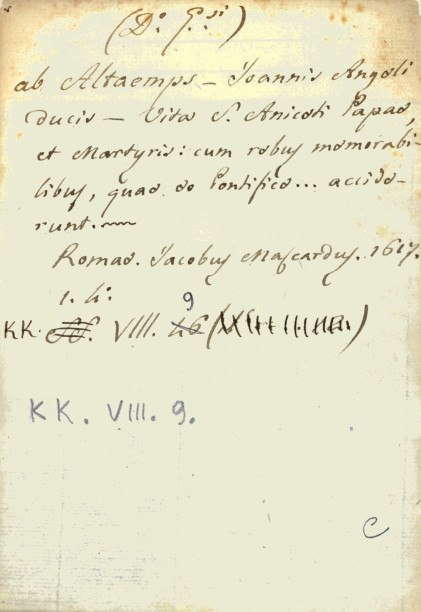 (D.º G.si)
ab Altaemps — Joannis Angeli
ducis — Vita S. Aniceti Papae,
et Martyris: cum rebus memorabi-
libus, quae eo Pontifice... accide-
runt.
Romae. Jacobus Mascardus. 1617.
1. 4º:
9
KK. VIII.
KK. VIII. 9.
C